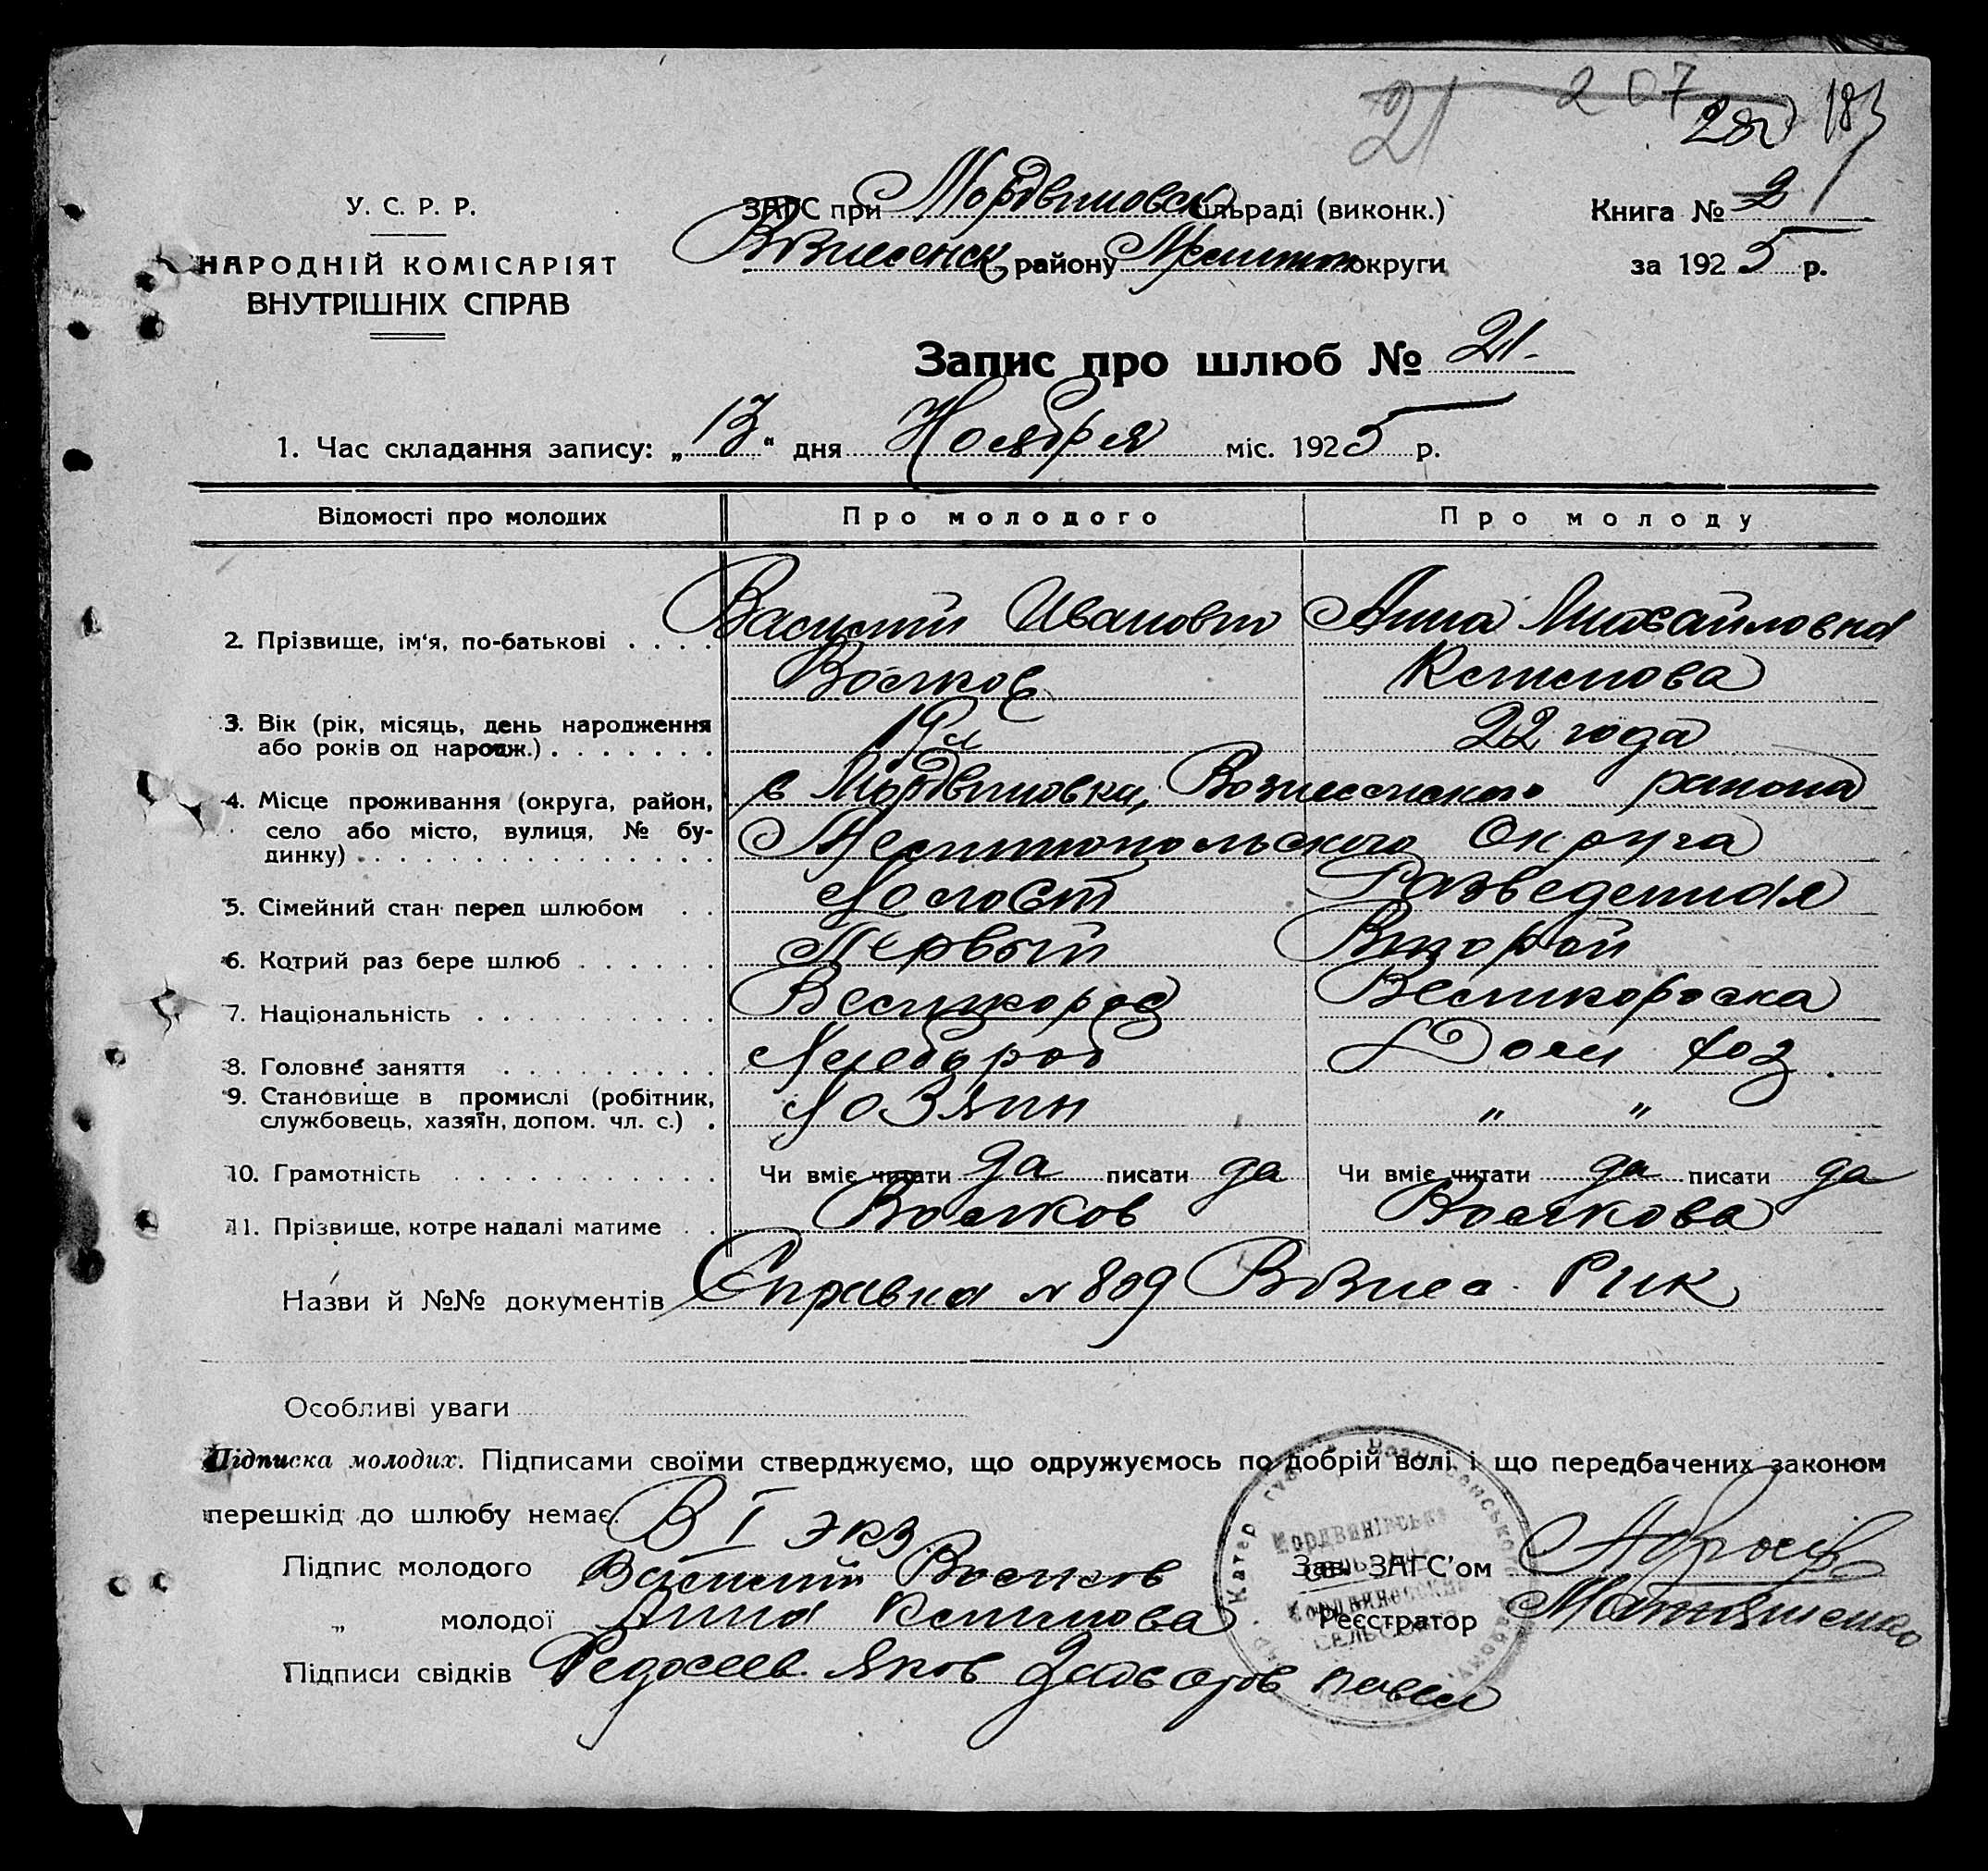 21 207
280 183
У. С. Р. Р.
НАРОДНІЙ КОМІСАРІЯТ
ВНУТРІШНІХ СПРАВ
ЗАГС при Мордвиновск сільраді (виконк.)
Вознесенск району Мелитоп округи
Книга № 2
за 1925 р.
Запис про шлюб № 21.
1. Час складання запису: „13“ дня Ноября міс. 1925 р.
Відомості про молодих Про молодого Про молоду
2. Прізвище, ім'я, по-батькові . . . . Василий Иванович Анна Михайловна
Волков Климова
3. Вік (рік, місяць, день народження
або років од народж.) . . . . . . . 19 л 22 года
4. Місце проживання (округа, район,
село або місто, вулиця, № бу-
динку) . . . . . . . . . . . . . . .
с Мордвиновки, Вознесенского района
Мелитопольского Округа
5. Сімейний стан перед шлюбом . . Холост Разведенная
6. Котрий раз бере шлюб . . . . . . Первый Второй
7. Національність . . . . . . . . . . Великорос Великороска
8. Головне заняття . . . . . . . . . Хлебороб Дом хоз.
9. Становище в промислі (робітник,
службовець, хазяїн, допом. чл. с.) . Хозяин „ „
10. Грамотність . . . . . . . . . . . Чи вміє читати да писати да Чи вміє читати да писати да
11. Прізвище, котре надалі матиме . . Волков Волкова
Назви й №№ документів Справка № 809 Вознес. Рик
Особливі уваги
Підписка молодих. Підписами своїми стверджуємо, що одружуємось по добрій волі і що передбачених законом
перешкід до шлюбу немає. В I экз
Підпис молодого Василий Волков Зав. ЗАГС'ом
„ молодої Анна Климова Реєстратор
Підписи свідків Федосеев Яков Павел
Мордвинівська
Мордвиновский